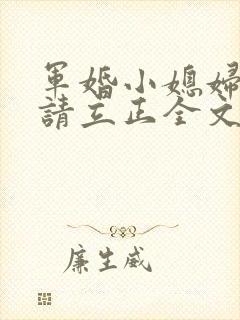 軍婚小媳婦
請立正全文
廉生威